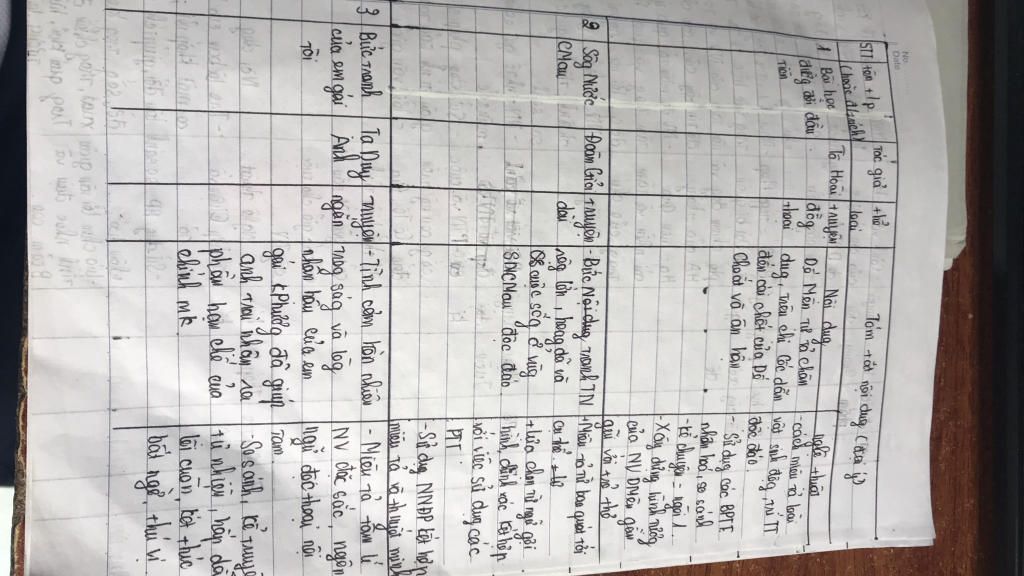 STT
Tên t/p
(hoặc đ.trích)
Tác giả
thể
loại
Tóm tắt nội dung (đại ý)
Nội dung
nghệ thuật
1
Bài học
đường đời đầu
tiên
Tô Hoài
truyện
đồng
thoại
Dế Mèn tả chân
dung, trêu chị Cốc dẫn
đến cái chết của Dế
Choắt và ân hận
- cách miêu tả loài
vật sinh động, trí TT
độc đáo
- Sử dụng các BPTT
nhân hoá, so sánh
- kể chuyện - ngôi 1
- Xây dựng hình tượng
của NV DMèn gần
gũi với trẻ thơ
2
Sông Nước
CMau
Đoàn Giỏi
truyện
dài
- Bức Nội dung tranh TN
rộng lớn hoang dã và
cuộc sống ở vùng
SNCMau độc đáo
+ Miêu tả từ bao quát tới
cụ thể
+ Lựa chọn từ ngữ gợi
hình, chính xác kết hợp
với việc sử dụng các
PTT
- Sử dụng NNĐP kết hợp
miêu tả và thuyết minh
3
Bức tranh
của em gái
tôi
Tạ Duy
Anh
truyện
ngắn
- Tình cảm hồn nhiên
trong sáng và lòng
nhân hậu của em
gái KPhương đã giúp
anh trai nhận ra
phần hạn chế của
chính mk
- Miêu tả tâm lí
NV đặc sắc, ngôn
ngữ độc thoại, nội
tâm
- So sánh, kể truyện
tự nhiên, hấp dẫn
lôi cuốn kết thúc
bất ngờ, thú vị